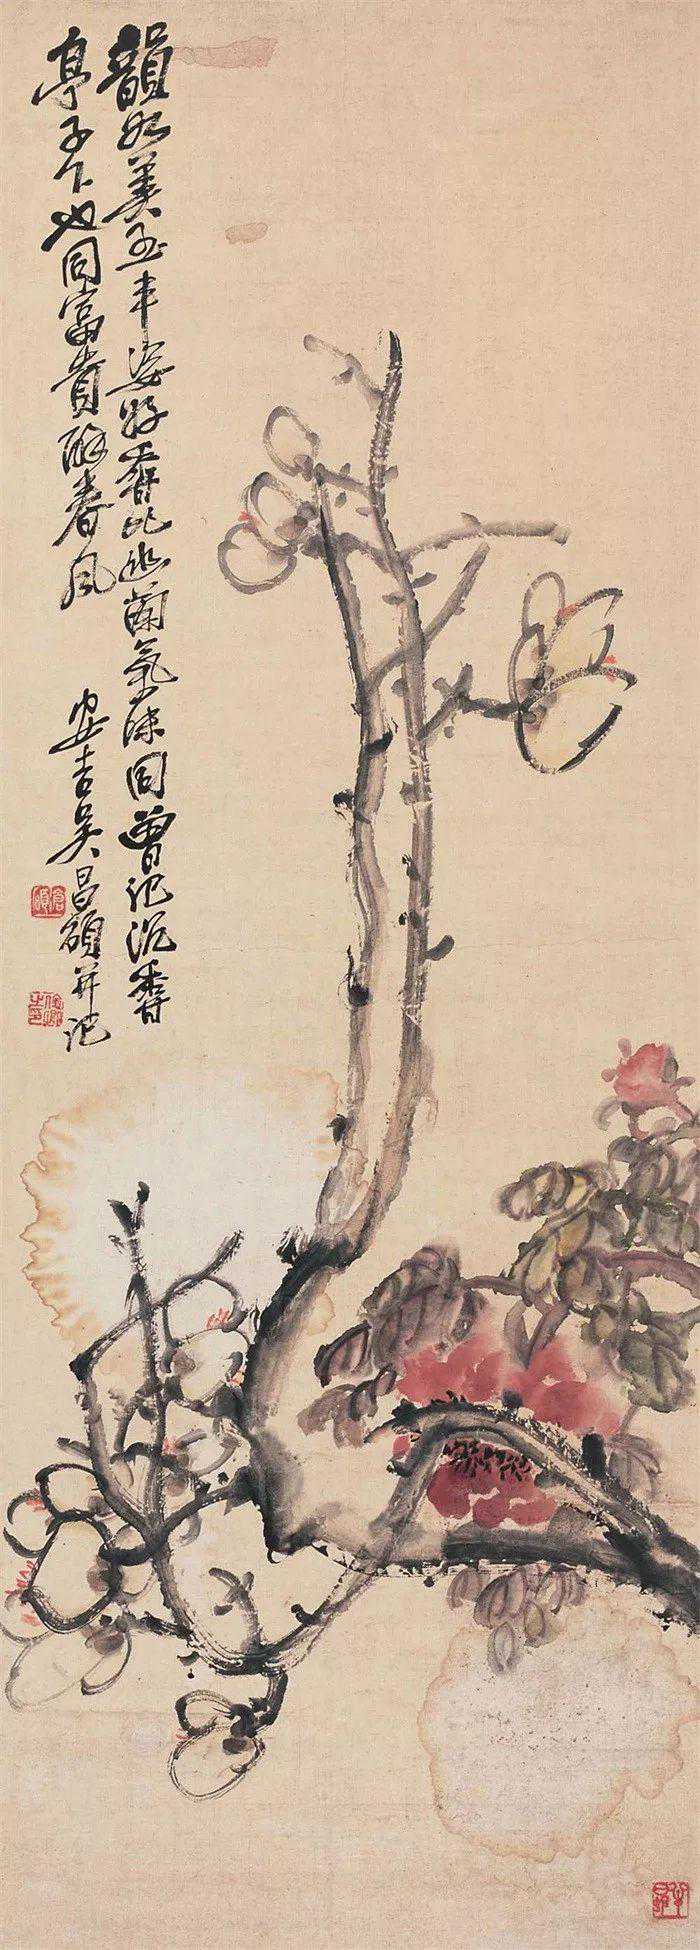 韻如美玉丰姿好香比幽蘭氣味同曾記沉香
亭子下也同富貴醉春風
安吉吳昌碩并記
倉碩